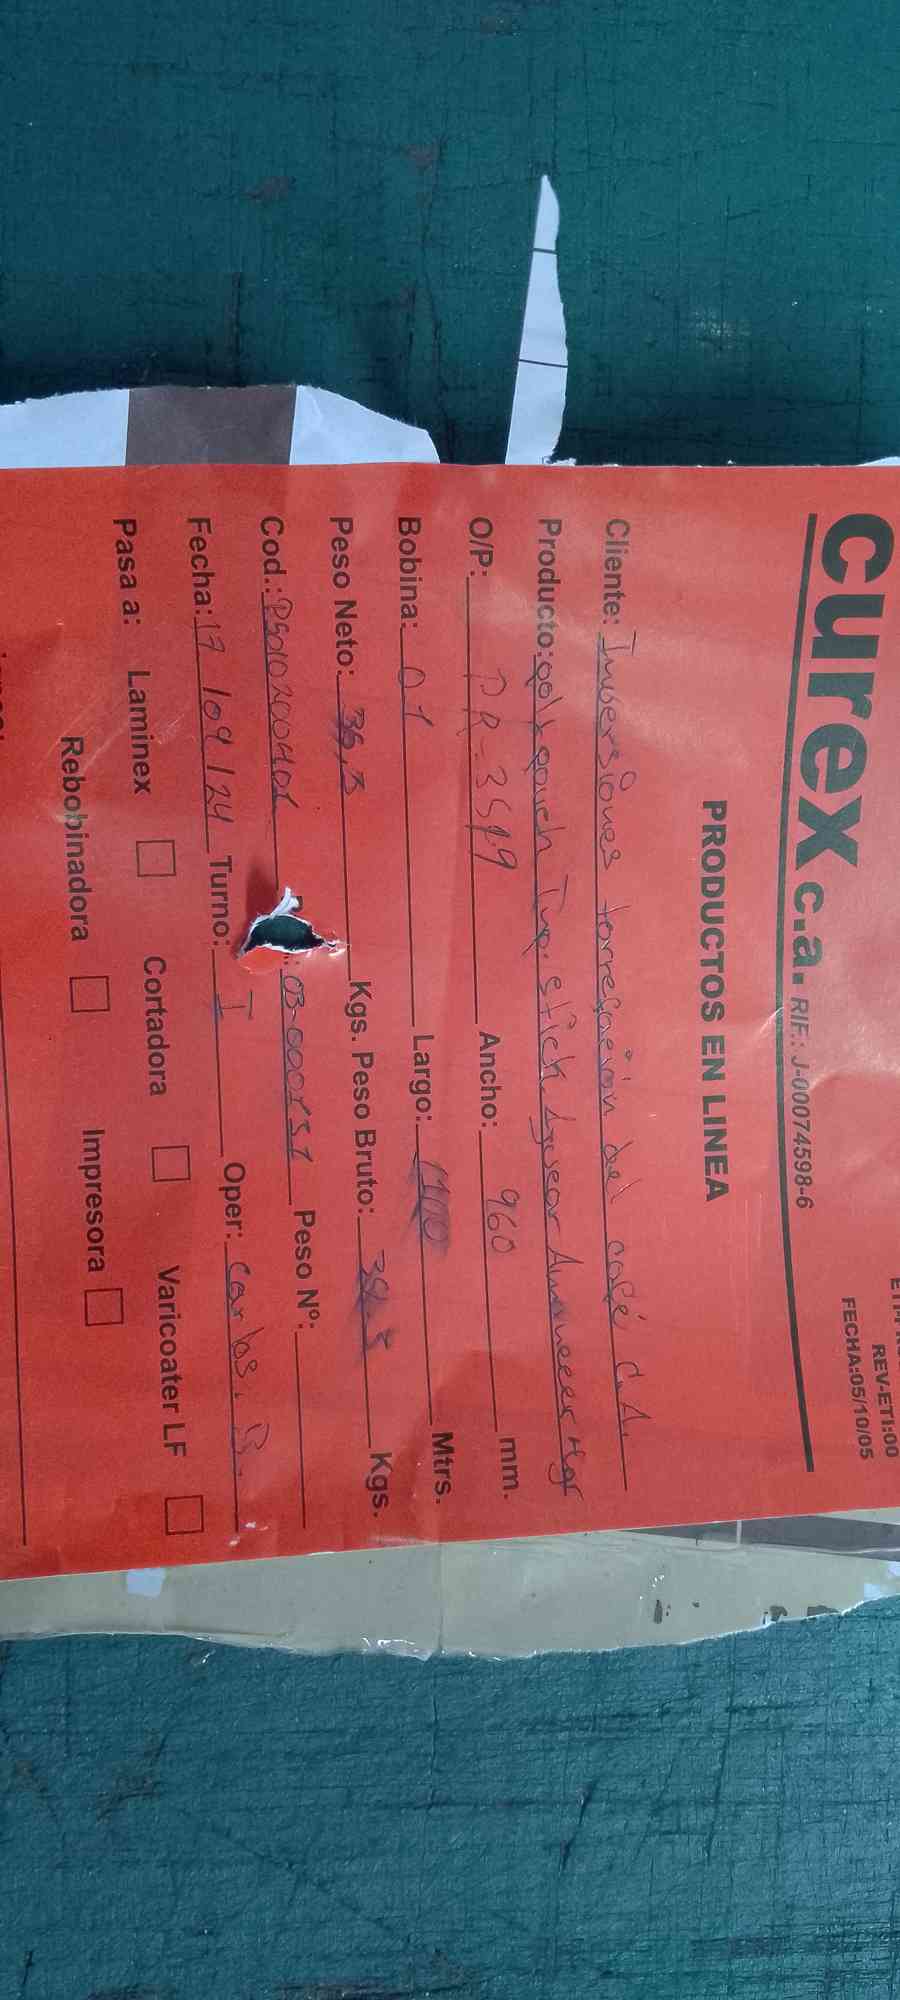 curex c.a. RIF.: J-00074598-6
REV-ETI:00
FECHA:05/10/05
PRODUCTOS EN LINEA
Cliente: Inversiones torrefacion del café C.A.
Producto: stick Amanecer
O/P: PR-3599 Ancho: 960 mm.
Bobina: 01 Largo: Mtrs.
Peso Neto: 36,3 Kgs. Peso Bruto: Kgs.
Cod.: Peso Nº:
Fecha: 17/09/24 Turno: I Oper: Carlos. B.
Pasa a: Laminex Cortadora Varicoater LF
Rebobinadora Impresora